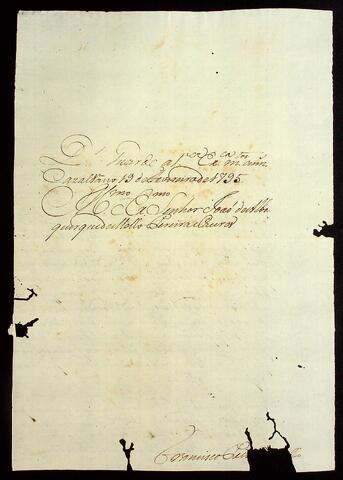 D.s Guarde a V. Ex.ca m.s ann.s
Cazalvasco 13 de Fevereiro de 1795
Ill.mo e Ex.mo Senhor João de Albu
querque de Mello Pereira e Caceres
Francisco